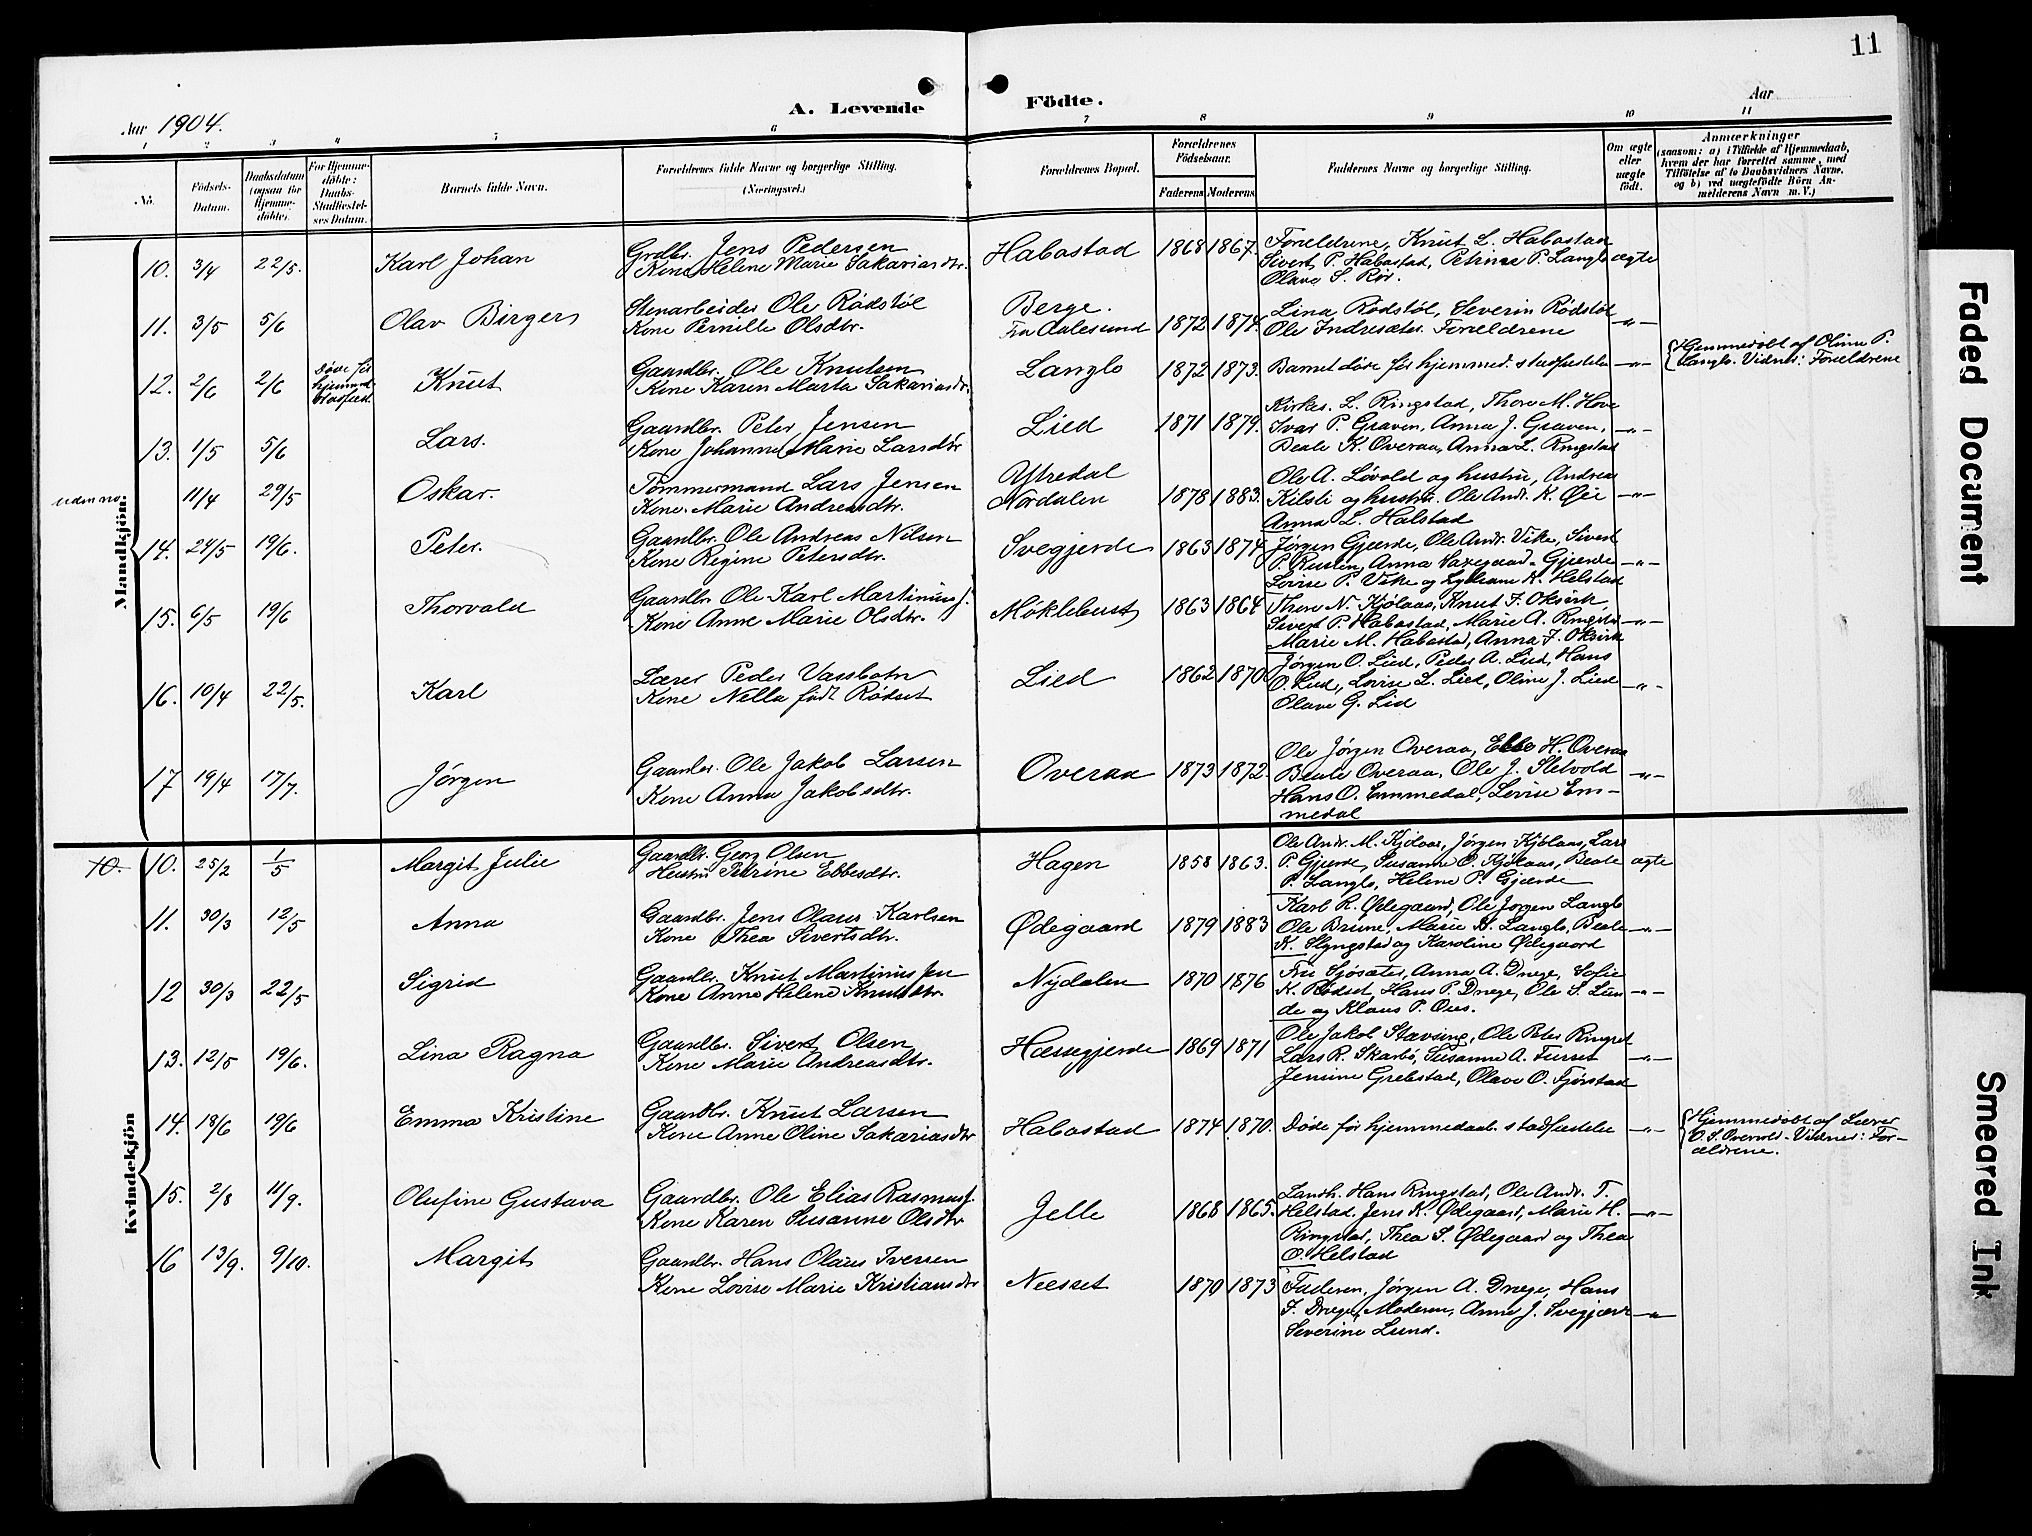 11
A. Levende Födte.
Aar 1904.
Aar
1 2 3 4 5 6 7 8 9 10 11
No.
Födsels-Datum.
Daabsdatum (ogsaa for Hjemmedöbte).
For Hjemmedöbte: Daabs-Stadfæstelses Datum.
Barnets fulde Navn.
Forældrenes fulde Navne og borgerlige Stilling. (Næringsvei.)
Forældrenes Bopæl.
Forældrenes Födselsaar.
Faderens Moderens
Faddernes Navne og borgerlige Stilling.
Om ægte eller uægte født.
Anmærkninger (saasom: a) i Tilfælde af Hjemmedaab, hvem der har forrettet samme, med Tilføielse af to Daabsvidners Navne, og b) ved uægtefødte Börn Anmelderens Navn m. V.)
Mandkjön.
10. 3/4 22/5. Karl Johan
Grdbr. Jens Pedersen
Kone Helene Marie Sakariasdtr.
Habostad 1868 1867.
Forældrene, Knut L. Habostad
Sivert P. Habostad, Petrine P. Langlo ægte
Olave S. Rør.
11. 3/5 5/6 Olav Birger
Stenarbeider Ole Rødstøl
Kone Pernille Olsdtr.
Berge.
Fra Aalesund 1872 1874.
Lina Rødstøl, Severin Rødstøl
Ole Indresæter. Forældrene -"-
12. 2/6 2/6 Døde før hjemmed. stadfæst. Knut
Gaardbr. Ole Knutsen
Kone Karen Marta Sakariasdtr.
Langlo 1872 1873.
Barnet døde før hjemmed. stadfæstelse -"-
Hjemmedøbt af Oline P.
Langlo. Vidner: Forældrene
13. 1/5 5/6 Lars.
Gaardbr. Peter Jensen
Kone Johanne Marie Larsdtr
Lied 1871 1879.
Kirkes. L. Ringstad, Thore M. Hove
Ivar P. Graven, Anna J. Graven, -"-
Beate K. Overaa, Anna L. Ringstad
uden no. 11/4 29/5 Oskar.
Tømmermand Lars Jensen
Kone Marie Andreasdtr.
Ytredal
Nordalen 1878 1883.
Ole A. Løvold og hustru, Andreas
Kilsti og hustru. Ole Andr. K. Øie -"-
Anna L. Halstad
14. 24/5 19/6. Peter.
Gaardbr. Ole Andreas Nilsen
Kone Regine Petersdtr.
Svegjerde 1863 1874
Jørgen Gjerde, Ole Andr. Vike, Sivert
P. Rusten, Anna Gjerde -"-
Lovise P. Vike og K. Helstad
15. 6/5 19/6 Thorvald
Gaardbr. Ole Karl Martinius J.
Kone Anne Marie Olsdtr.
Møklebust 1863 1864
Thore N. Kjølaas, Knut J. Oksvik
Sivert P. Habostad, Marie A. Ringstd -"-
Marie M. Habostad, Anna J. Oksvik
16. 10/4 22/5. Karl
Lærer Peder Vassbotn
Kone Nella født Rødset
Lied 1862 1870
Jørgen O. Lied, Peder A. Lied, Hans
O. Lied, Lovise L. Lied, Oline J. Lied -"-
Olave G. Lied
17 19/4 17/7. Jørgen
Gaardbr. Ole Jakob Larsen
Kone Anna Jakobsdtr.
Overaa 1873 1872.
Ole Jørgen Overaa, Ebbe H. Overaa
Beate Overaa, Ole J. Sletvold -"-
Hans O. Emmedal, Lovise Em-
medal
Kvindekjön
10. 10. 25/2 1/5 Margit Julie
Gaardbr. Georg Olsen
Hustru Petrine Ebbesdtr.
Hagen 1858 1863.
Ole Andr. M. Kjølaas, Jørgen Kjølaas, Lars
P. Gjerde, Susanne O. Kjølaas, Beate ægte
P. Langlo, Helene P. Gjærde
11. 30/3 12/5 Anna
Gaardbr. Jens Olaus Karlsen
Kone Thea Sivertsdtr.
Ødegaard 1879 1883
Karl R. Ødegaard, Ole Jørgen Langlo
Ole Brune, Marie K. Langlo, Beate -"-
K. Slyngstad og Karoline Ødegaard
12 30/3 22/5 Sigrid
Gaardbr. Knut Martinius Jen
Kone Anne Helene Knutsdtr.
Nydalen 1870 1876
Fru Sjøsæter, Anna A. Drege, Sofie
K. Rødset, Hans P. Drege, Ole S. Lun -"-
de og Klaus P. Øus.
13. 12/5 19/6. Lina Ragna
Gaardbr. Sivert Olsen
Kone Marie Andreasdtr.
Hæssegjerde 1869 1871
Ole Jakob Stavseng, Ole Peter Ringset
Lars R. Skarbø, Susanne A. Furset -"-
Jensine Grebstad, Olave O. Fjørstad
14. 18/6 19/6 Emma Kristine
Gaardbr. Knut Larsen
Kone Anne Oline Sakariasdtr
Habostad 1874 1870.
Døde før hjemmedaab. stadfæstelse -"-
Hjemmedøbt af Lærer
O. S. Overvold - Vidner: For-
ældrene.
15. 2/8 11/9. Olufine Gustava
Gaardbr. Ole Elias Rasmus J.
Kone Karen Susanne Olsdtr
Jelle 1868 1865.
Landh. Hans Ringstad, Ole Andr. T.
Helstad, Jens K. Ødegaard, Marie H. -"-
Ringstad, Thea S. Ødegaard og Thea
O. Helstad
16 13/9. 9/10. Margit
Gaardbr. Hans Olaus Iversen
Kone Lovise Marie Kristiansdtr
Neesset 1870 1873
Faderen, Jørgen A. Drege, Hans
J. Drege, Moderen, Anne J. Svegjærde -"-
Severine Lund.
Faded Document
Smeared Ink